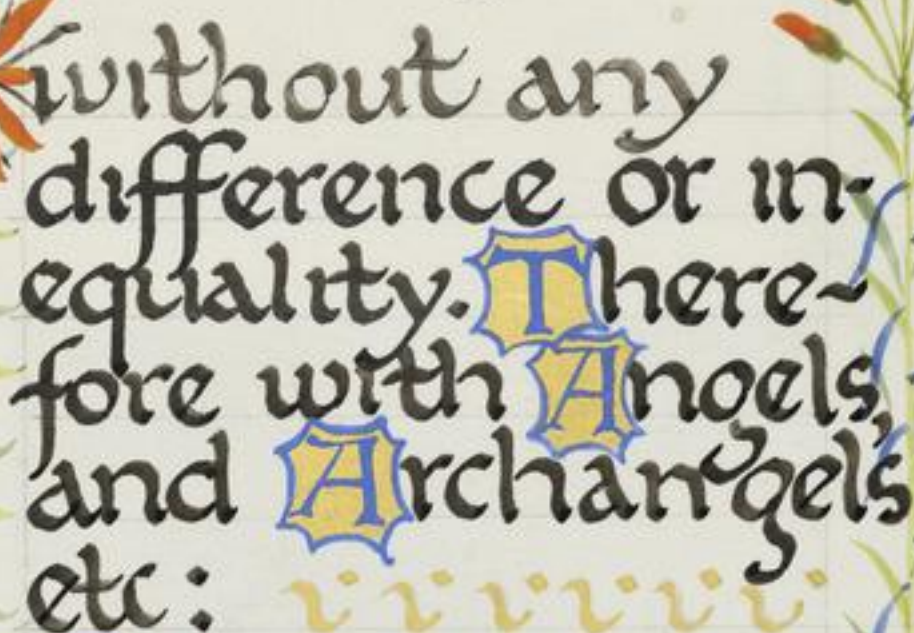 without any
difference or in-
equality. There-
fore with Angels,
and Archangels
etc: